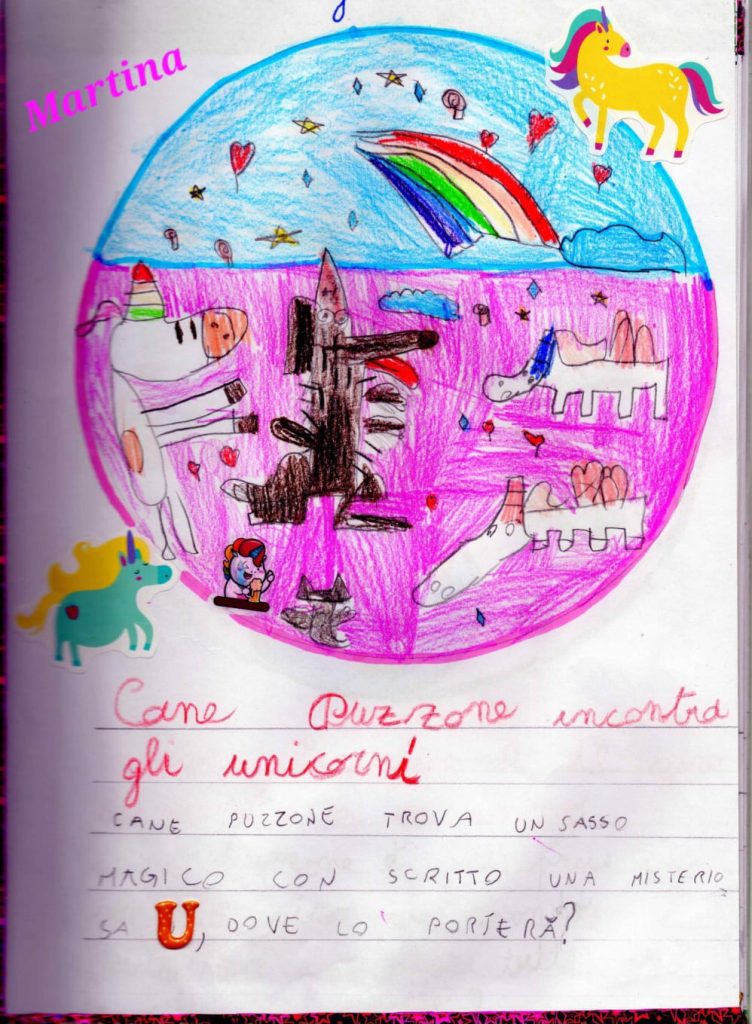 Martina
Cane Puzzone incontra
gli unicorni
CANE PUZZONE TROVA UN SASSO
MAGICO CON SCRITTO UNA MISTERIO
SA U, DOVE LO PORTERÀ?